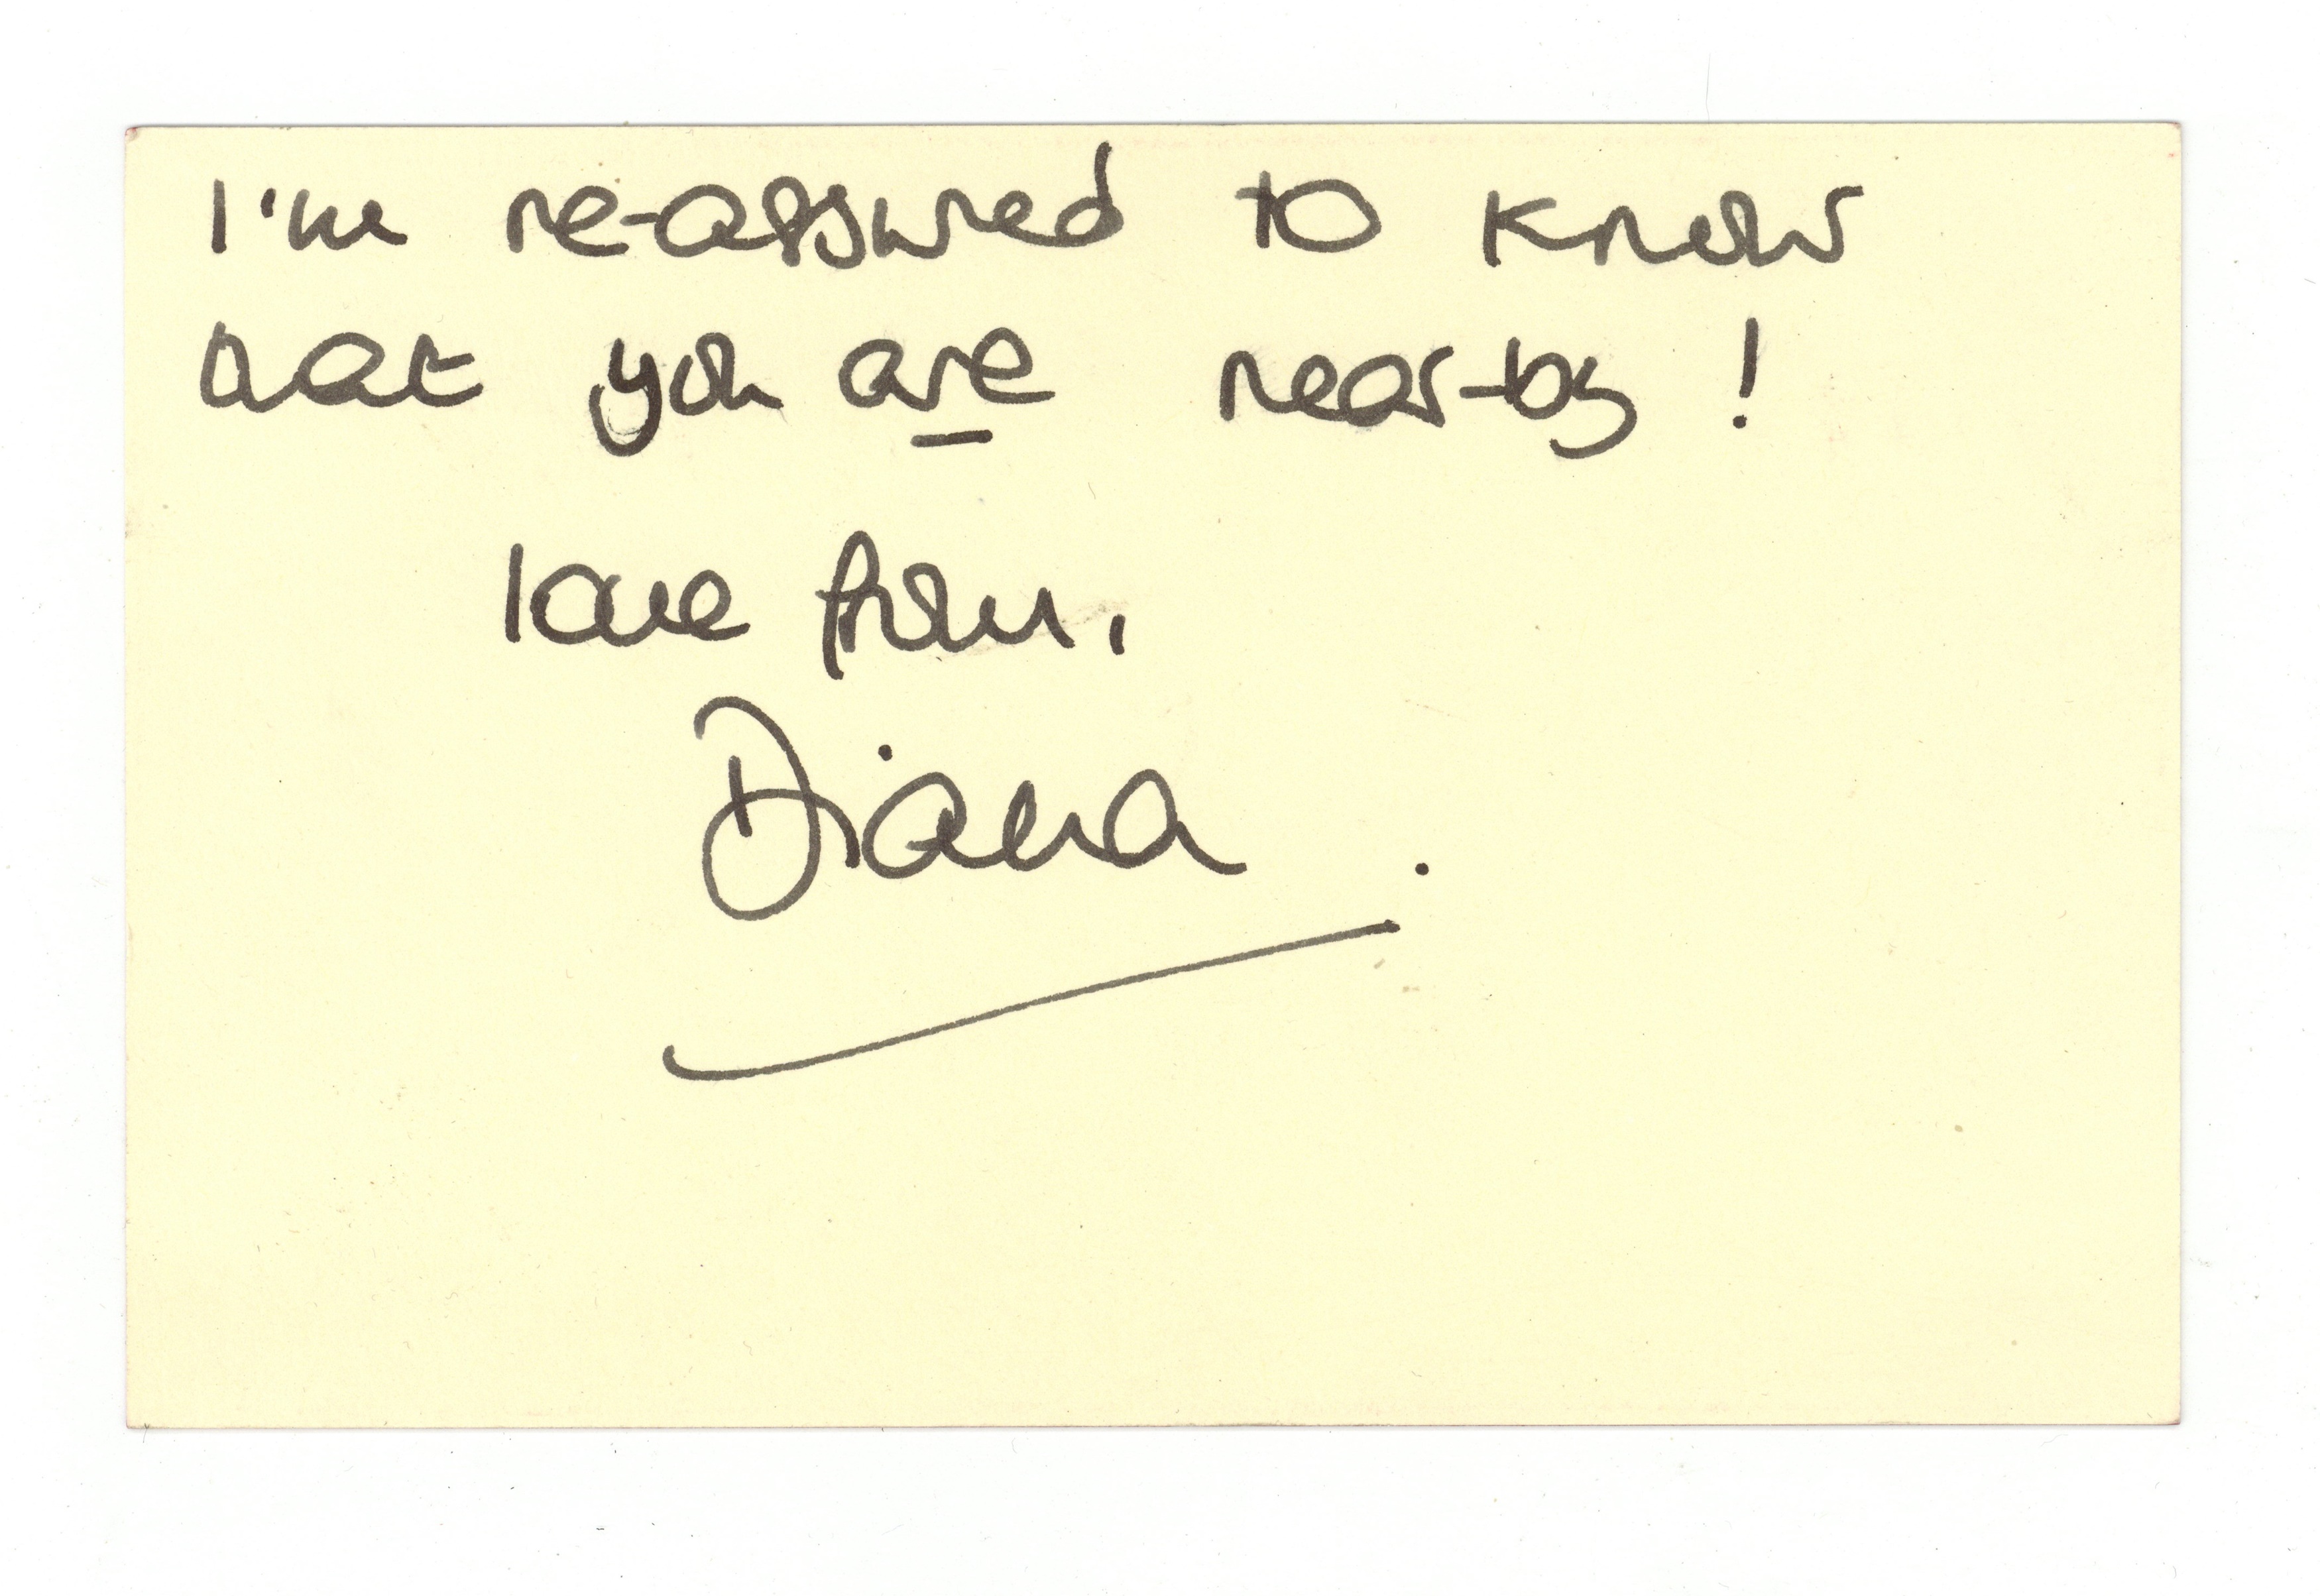 I'm re-assured to know
that you are near-by !
love from,
Diana .